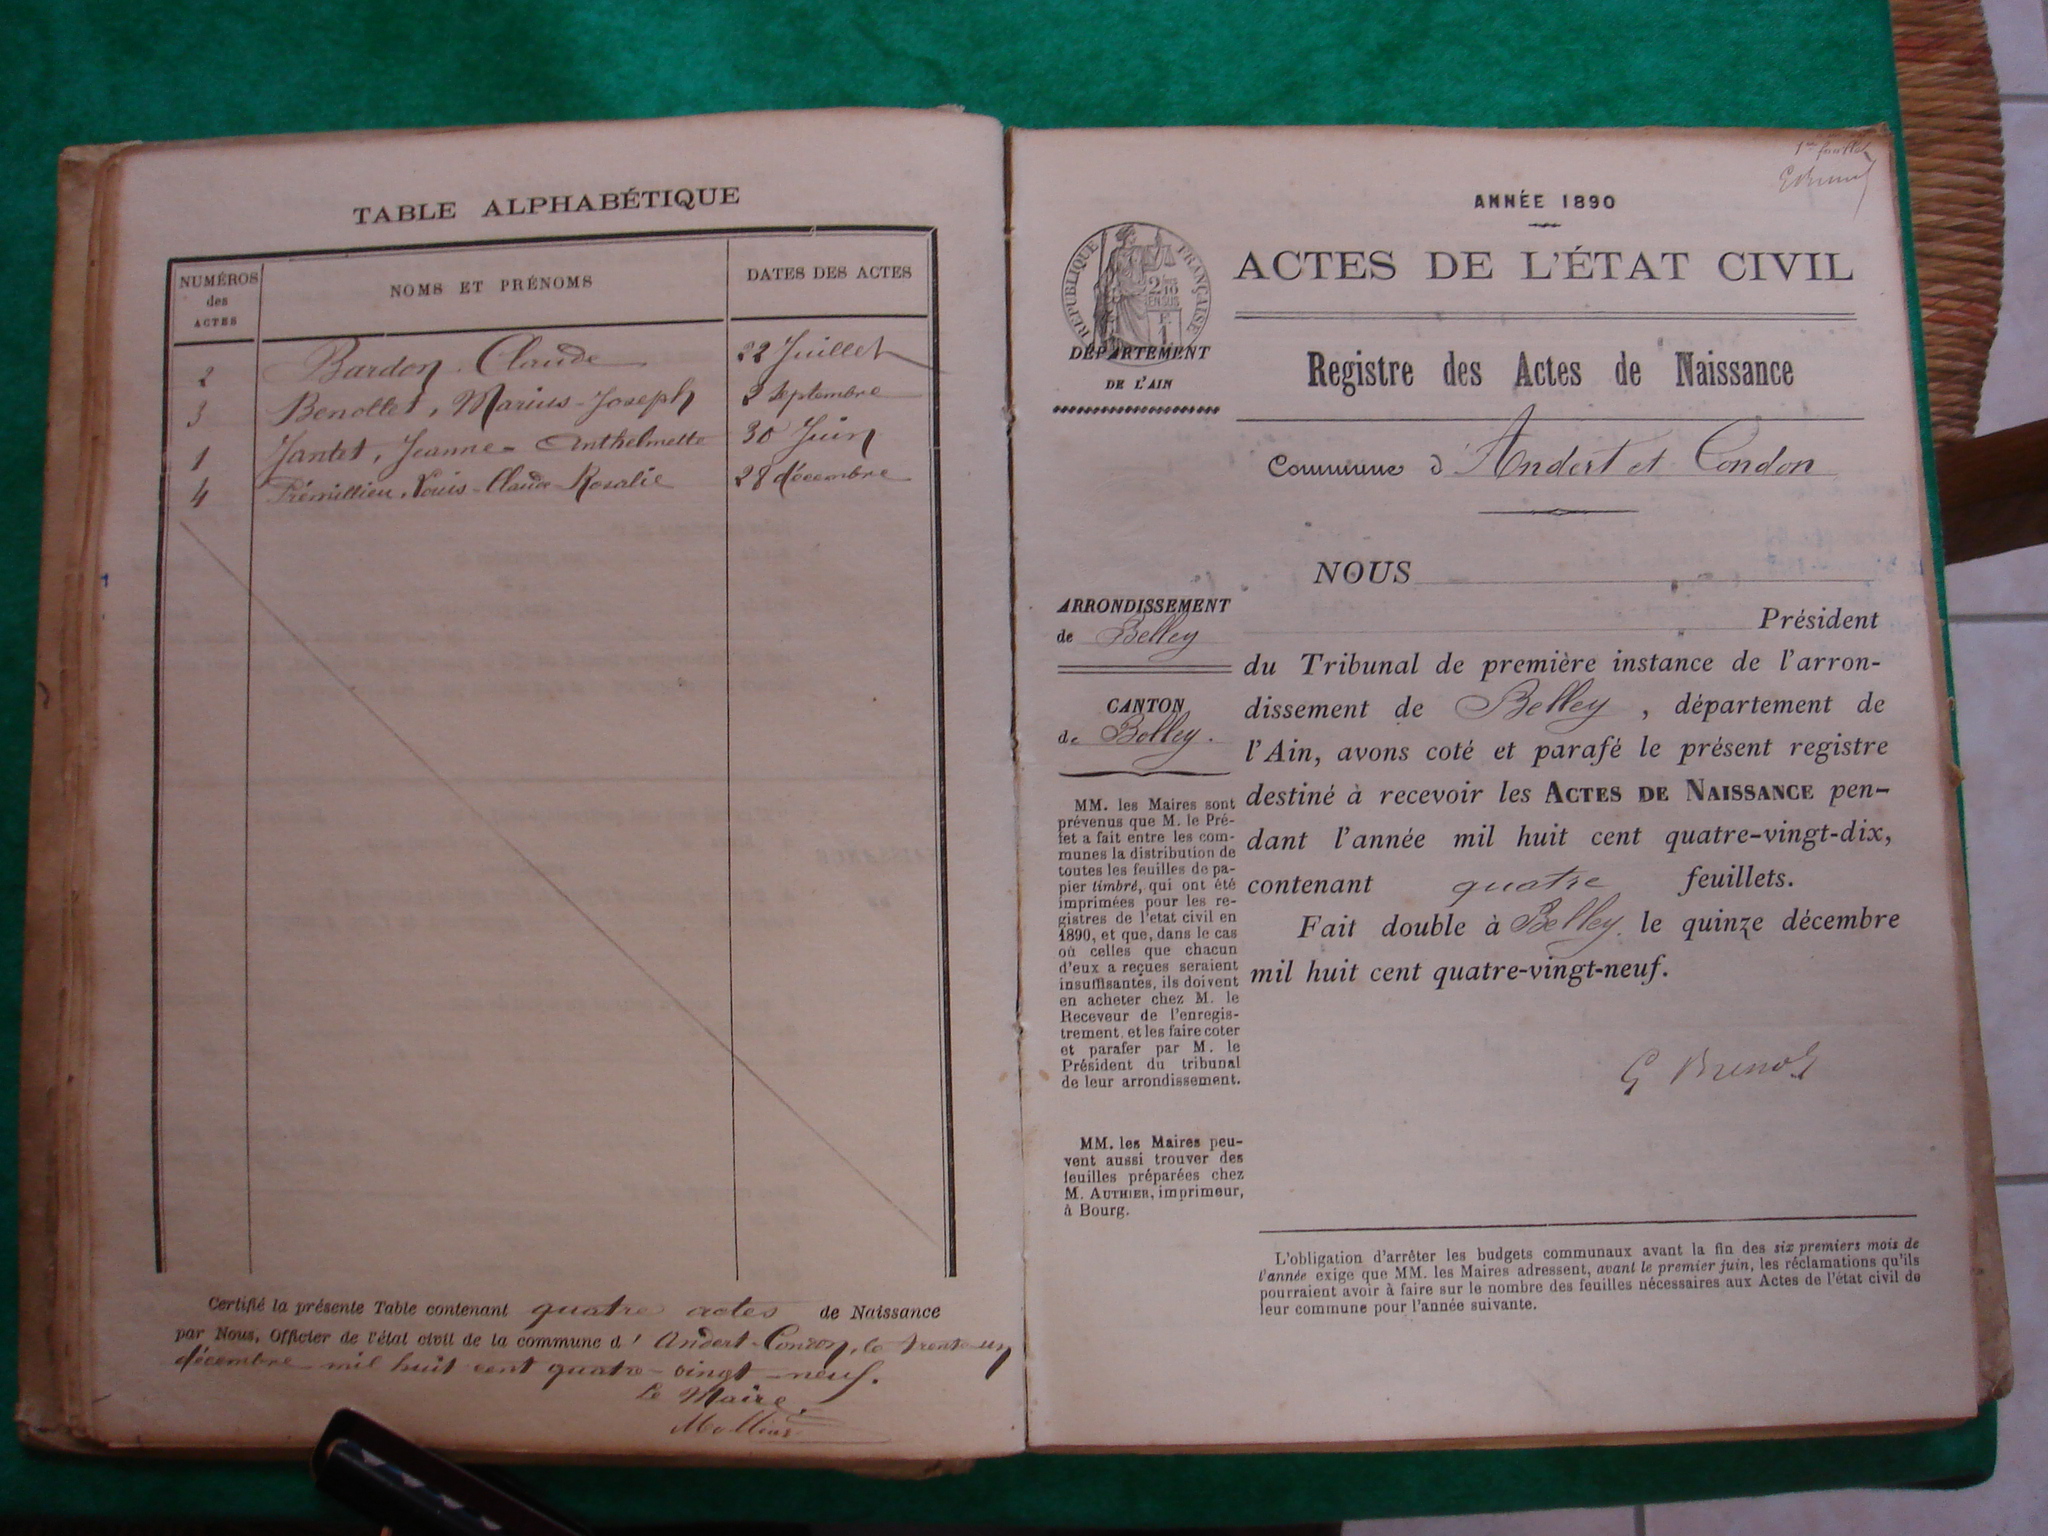 TABLE ALPHABÉTIQUE
NUMÉROS des ACTES
NOMS ET PRÉNOMS
DATES DES ACTES
2 Bardon, Claude 22 Juillet
3 Benollet, Marius-Joseph 2 Septembre
1 Jantet, Jeanne-Anthelmette 30 Juin
4 Prémillieu, Louis-Claude-Rosalie 28 décembre
Certifié la présente Table contenant quatre actes de Naissance
par Nous, Officier de l'état civil de la commune d' Andert-Condon, le trente-un
décembre mil huit cent quatre-vingt-neuf.
Le Maire,
1er feuillet
ANNÉE 1890
RÉPUBLIQUE FRANÇAISE
2/10 EN SUS
ACTES DE L'ÉTAT CIVIL
DÉPARTEMENT
DE L'AIN
Registre des Actes de Naissance
Commune d'Andert et Condon
ARRONDISSEMENT
de Belley
CANTON
de Belley.
MM. les Maires sont
prévenus que M. le Pré-
fet a fait entre les com-
munes la distribution de
toutes les feuilles de pa-
pier timbré, qui ont été
imprimées pour les re-
gistres de l'etat civil en
1890, et que, dans le cas
où celles que chacun
d'eux a reçues seraient
insuffisantes, ils doivent
en acheter chez M. le
Receveur de l'enregis-
trement, et les faire coter
et parafer par M. le
Président du tribunal
de leur arrondissement.
MM. les Maires peu-
vent aussi trouver des
feuilles préparées chez
M. AUTHIER, imprimeur,
à Bourg.
NOUS
Président
du Tribunal de première instance de l'arron-
dissement de Belley, département de
l'Ain, avons coté et parafé le présent registre
destiné à recevoir les ACTES DE NAISSANCE pen-
dant l'année mil huit cent quatre-vingt-dix,
contenant quatre feuillets.
Fait double à Belley, le quinze décembre
mil huit cent quatre-vingt-neuf.
L'obligation d'arrêter les budgets communaux avant la fin des six premiers mois de
l'année exige que MM. les Maires adressent, avant le premier juin, les réclamations qu'ils
pourraient avoir à faire sur le nombre des feuilles nécessaires aux Actes de l'état civil de
leur commune pour l'année suivante.